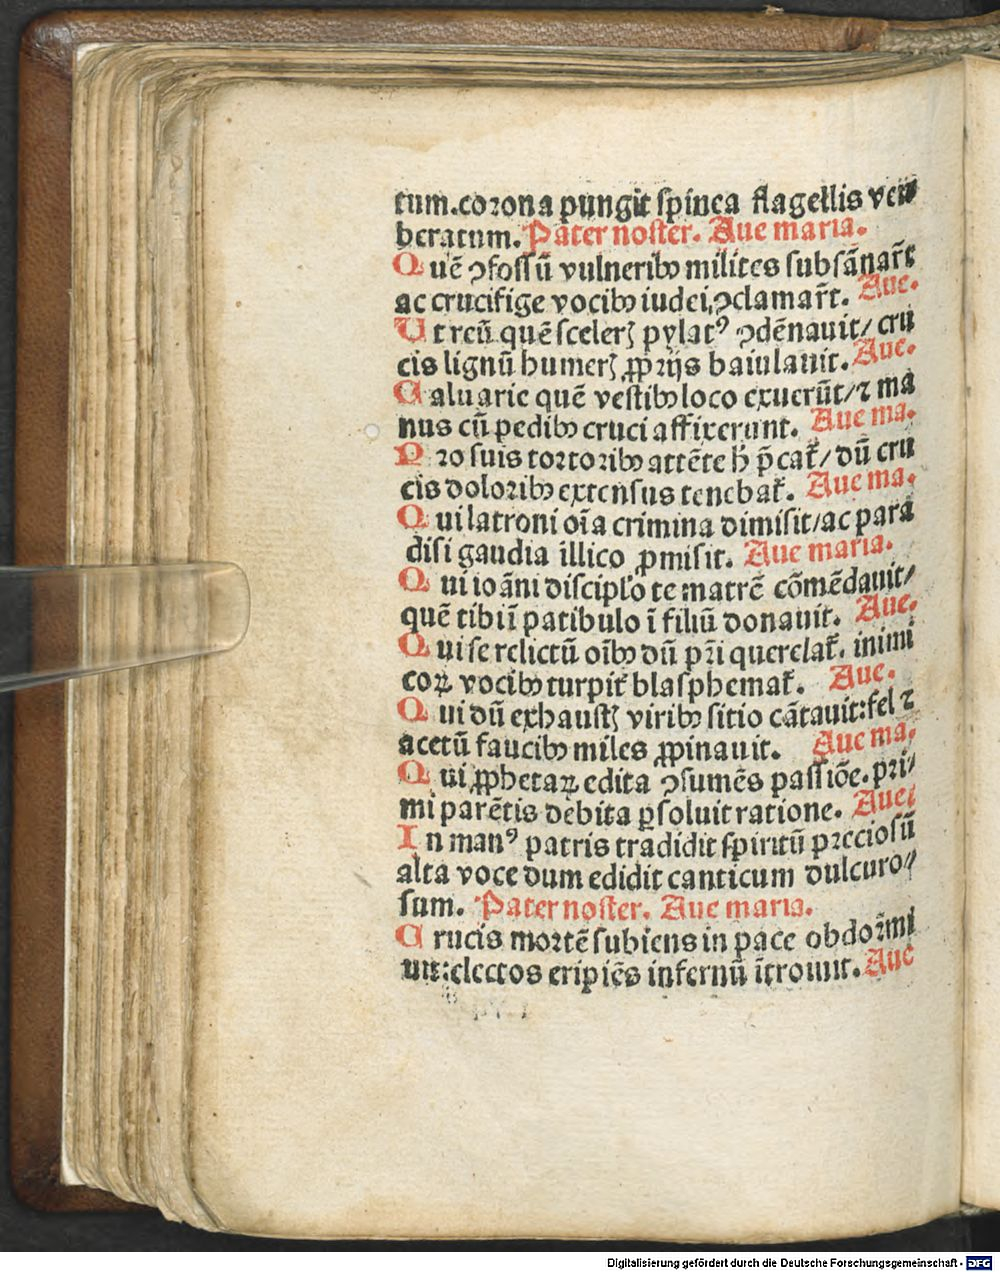 tum.corona pungit spinea flagellis ver
beratum. Pater noster. Aue maria.
Quē ꝯfossū vulneribꝰ milites subsānar̄t
ac crucifige vocibꝰ iudei, ꝯclamar̄t. Aue.
Ut reū quē scelerꝫ pylatꝰ ꝯdēnauit/ cru
cis lignū humerꝫ ꝓprijs baiulauit. Aue.
Caluarie quē vestibꝰ loco exuerūt/ ⁊ ma
nus cū pedibꝰ cruci affixerunt. Aue ma.
Pro suis tortoribꝰ attēte h̄ p̄cat̄/ dū cru
cis doloribꝰ extensus tenebat̄. Aue ma.
Qui latroni oīa crimina dimisit/ac para
disi gaudia illico ꝓmisit. Aue maria.
Qui ioāni discipl̓o te matrē cōmēdauit/
quē tibi ī patibulo ī filiū donauit. Aue.
Qui se relictū oībꝰ dū pr̄i querelat̄. inimi
coꝝ vocibꝰ turpit̄ blasphemat̄. Aue.
Qui dū exhaustꝫ viribꝰ sitio cātauit:fel ⁊
acetū faucibꝰ miles ꝓpinauit. Aue ma.
Qui ꝓphetaꝝ edita ꝯsumēs passiōe. pri/
mi parētis debita ꝑsoluit ratione. Aue.
In manꝰ patris tradidit spiritū preciosū
alta voce dum edidit canticum dulcuro//
sum. Pater noster. Aue maria.
Crucis mortē subiens in pace obdormi
uit: electos eripiēs infernū ītrouit. Aue
Digitalisierung gefördert durch die Deutsche Forschungsgemeinschaft - DFG